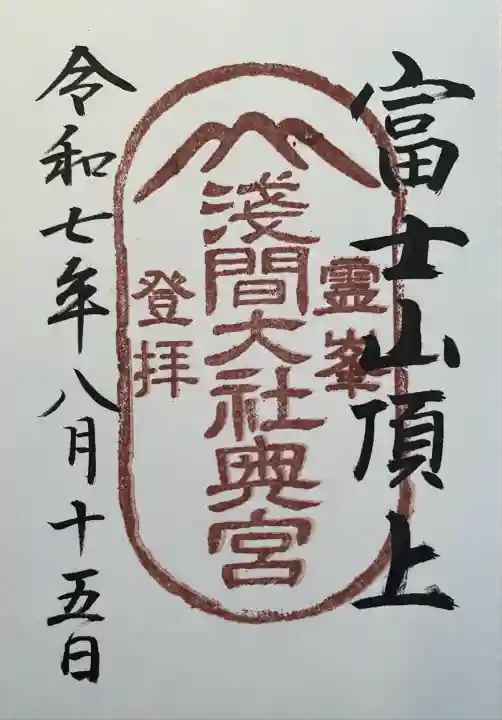 富士山頂上
霊峯
淺間大社奥宮
登拝
令和七年八月十五日